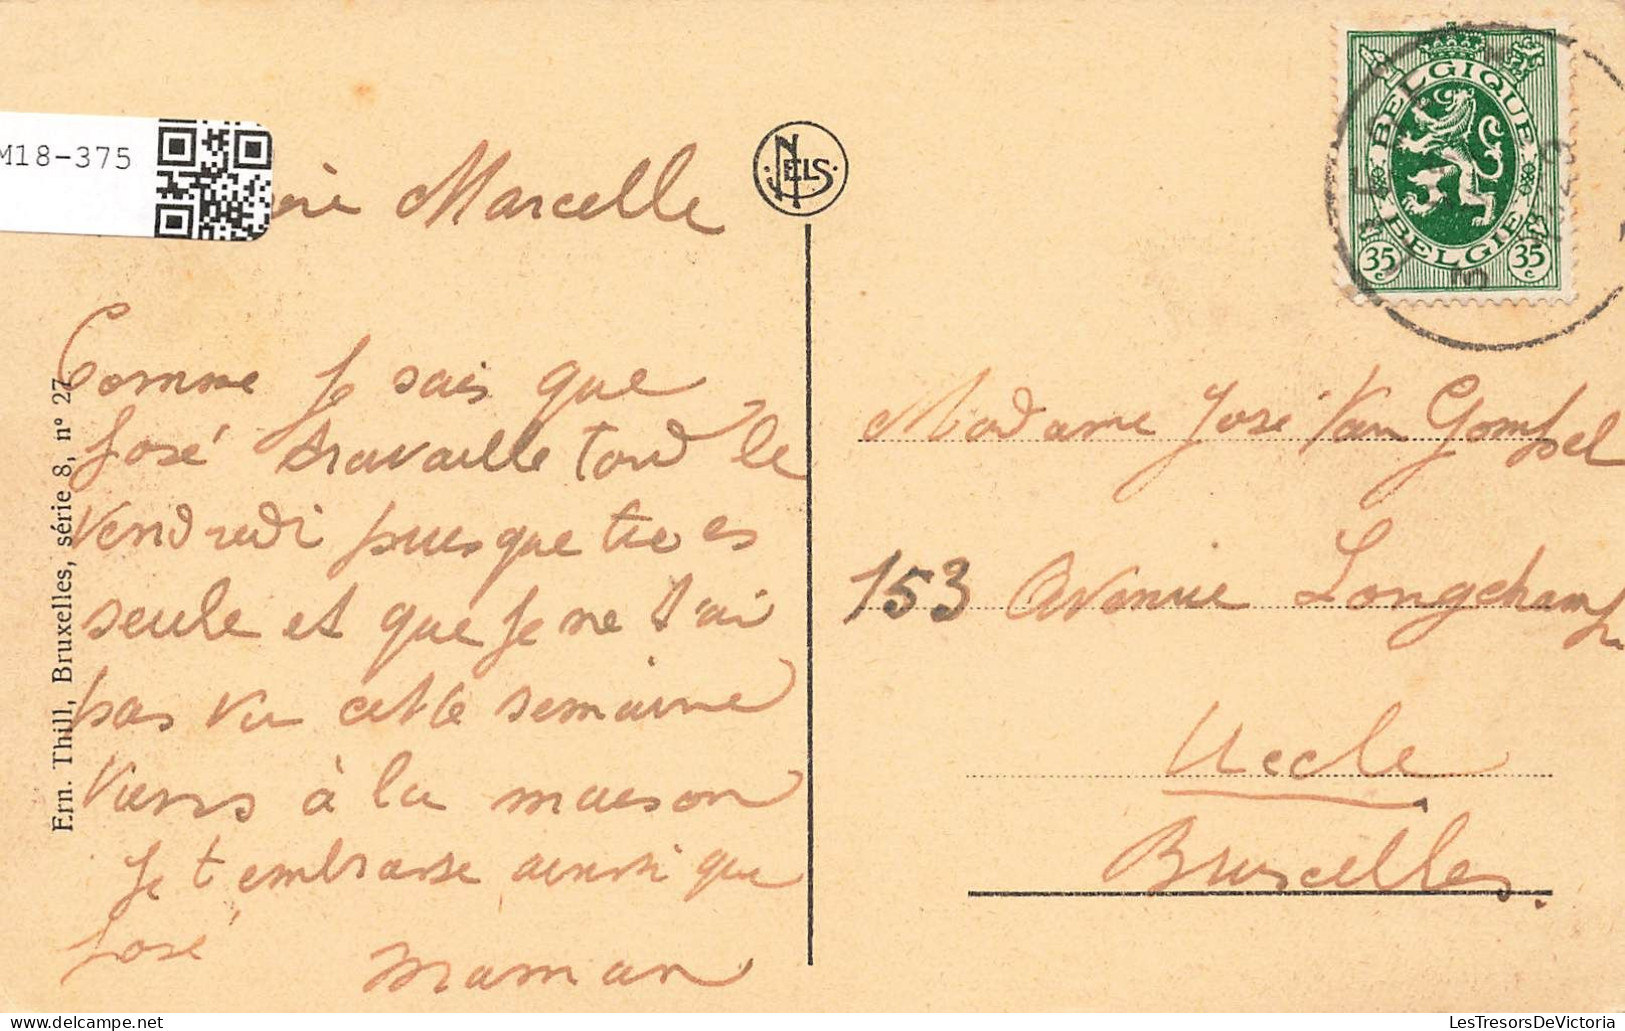 M18-375
Marcelle
Comme je sais que
José travaille tard le
vendredi puisque tu es
seule et que je ne t'ai
pas vu cette semaine
viens à la maison
Je t'embrasse ainsi que
José
maman
Ern. Thill, Bruxelles, série 8, n° 27
NELS
BELGIQUE
BELGIE
35 35
Madame José Van Gompel
153 Avenue Longchamp
Uccle
Bruxelles.
delcampe.net
LesTresorsDeVictoria